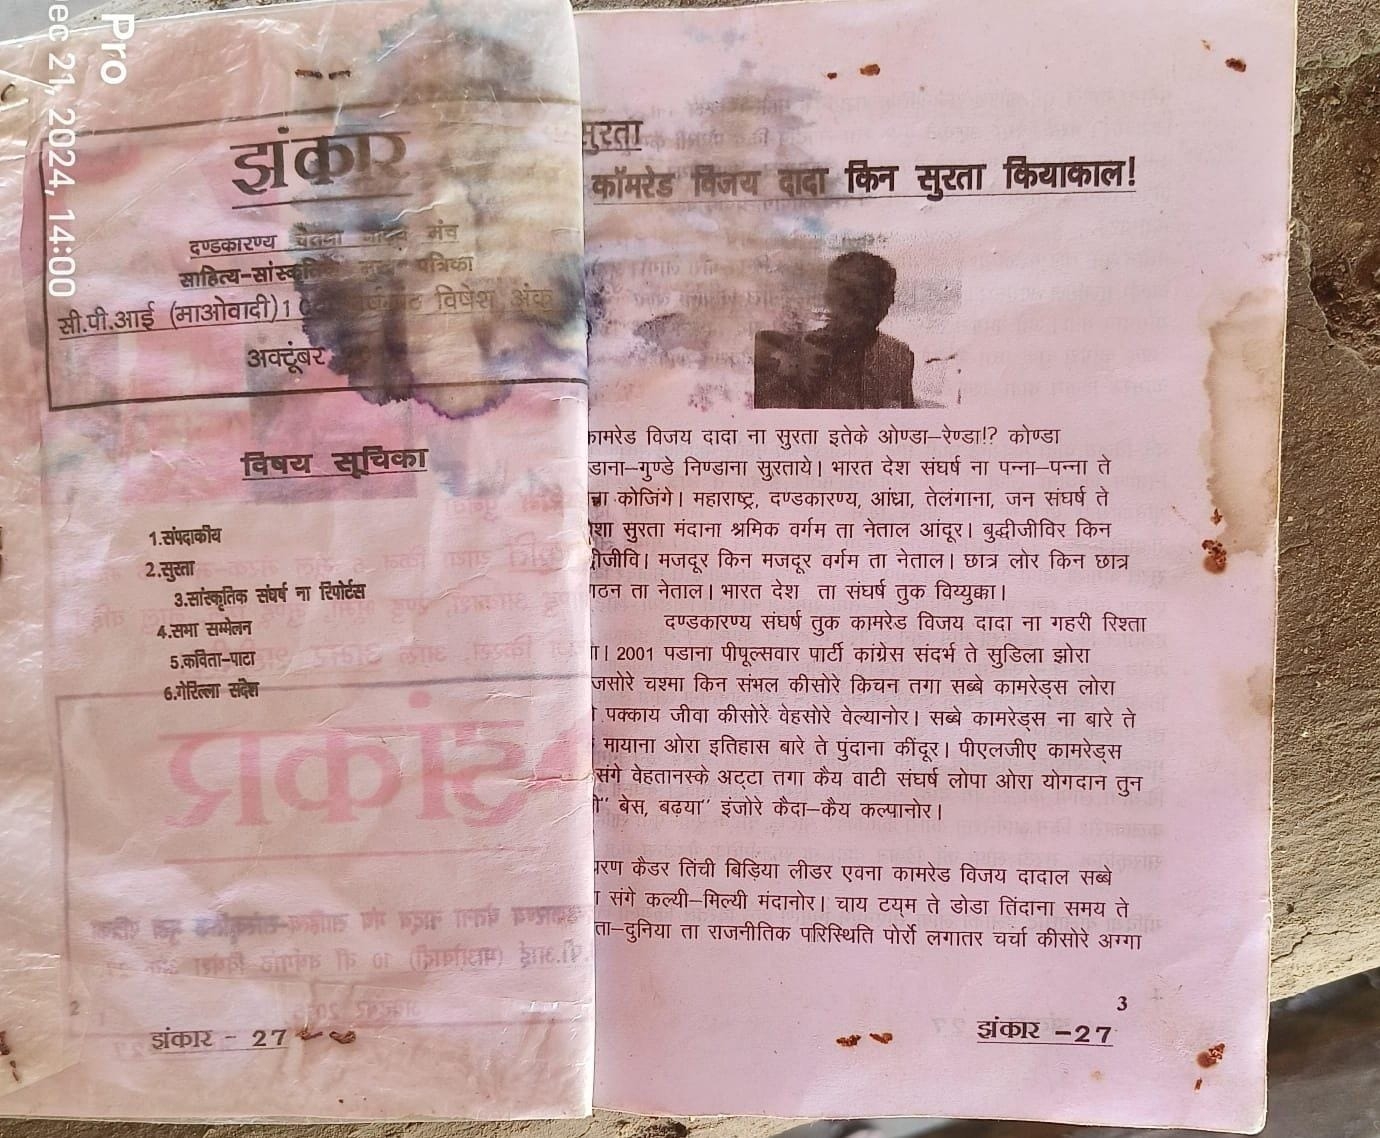 Pro
Dec 21, 2024, 14:00
झंकार
दण्डकारण्य चेतना नाट्य मंच
साहित्य-सांस्कृतिक पत्रिका
सी.पी.आई (माओवादी) 10 विषेश अंक
अक्टूंबर
विषय सूचिका
1.संपदाकीय
2.सुरता
3.सांस्कृतिक संघर्ष ना रिपोर्टस
4.सभा सम्मेलन
5.कविता-पाटा
6.गेरिल्ला संदेश
2
झंकार - 27
सुरता
कॉमरेड विजय दादा किन सुरता कियाकाल!
कामरेड विजय दादा ना सुरता इतेके ओण्डा–रेण्डा!? कोण्डा
डाना–गुण्डे निण्डाना सुरताये। भारत देश संघर्ष ना पन्ना–पन्ना ते
कोजिंगे। महाराष्ट्र, दण्डकारण्य, आंध्रा, तेलंगाना, जन संघर्ष ते
शा सुरता मंदाना श्रमिक वर्गम ता नेताल आंदूर। बुद्धीजीविर किन
जीवि। मजदूर किन मजदूर वर्गम ता नेताल। छात्र लोर किन छात्र
गठन ता नेताल। भारत देश ता संघर्ष तुक विय्युक्का।
दण्डकारण्य संघर्ष तुक कामरेड विजय दादा ना गहरी रिश्ता
। 2001 पडाना पीपूल्सवार पार्टी कांग्रेस संदर्भ ते सुडिला झोरा
जसोरे चश्मा किन संभल कीसोरे किचन तगा सब्बे कामरेड्स लोरा
पक्काय जीवा कीसोरे वेहसोरे वेल्यानोर। सब्बे कामरेड्स ना बारे ते
मायाना ओरा इतिहास बारे ते पुंदाना कींदूर। पीएलजीए कामरेड्स
संगे वेहतानस्के अट्टा तगा कैय वाटी संघर्ष लोपा ओरा योगदान तुन
" बेस, बढ़या" इंजोरे कैदा–कैय कल्पानोर।
रण कैडर तिंची बिड़िया लीडर एवना कामरेड विजय दादाल सब्बे
संगे कल्यी–मिल्यी मंदानोर। चाय टय्म ते डोडा तिंदाना समय ते
ता–दुनिया ता राजनीतिक परिस्थिति पोर्रो लगातर चर्चा कीसोरे अग्गा
3
झंकार –27